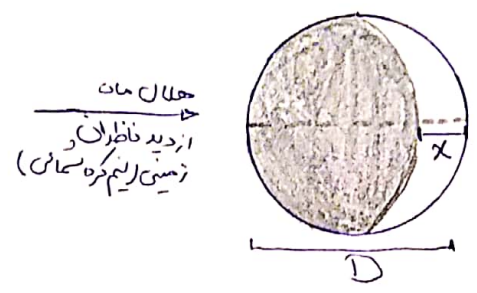 هلال ماه
از دید ناظران
زمینی (نیم کره شمالی)
x
D